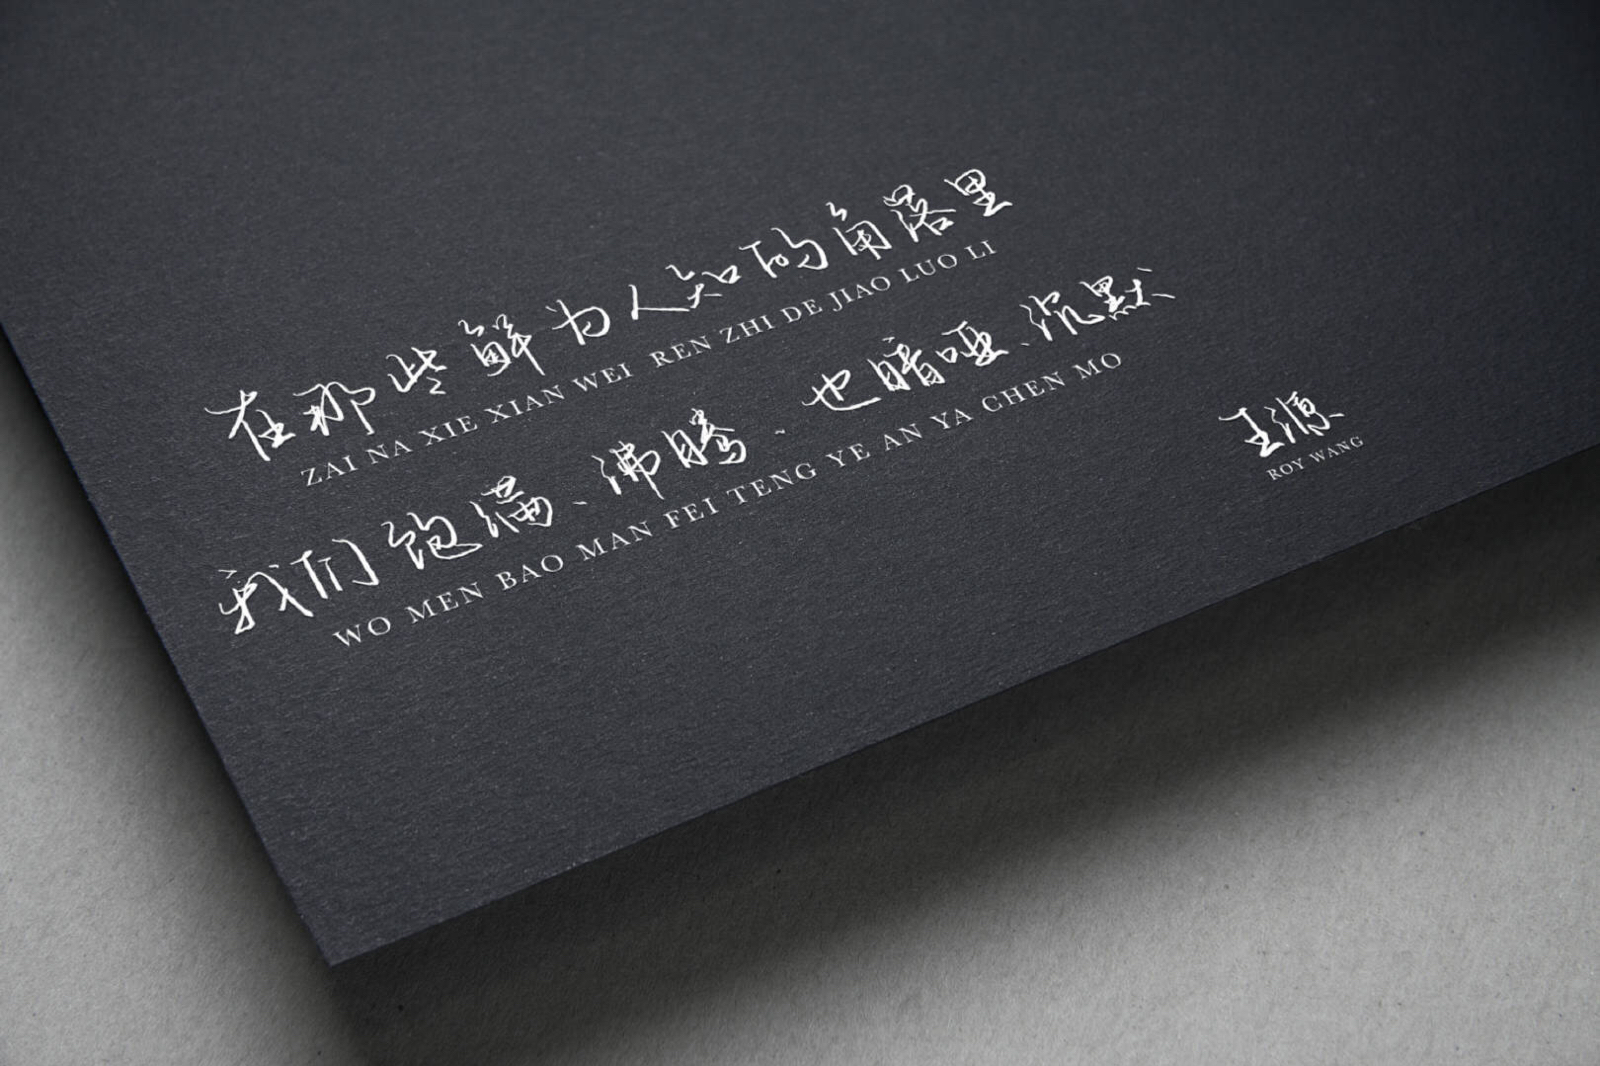 在那些鲜为人知的角落里
ZAI NA XIE XIAN WEI REN ZHI DE JIAO LUO LI
我们饱满、沸腾、也暗哑、沉默
WO MEN BAO MAN FEI TENG YE AN YA CHEN MO
王源
ROY WANG